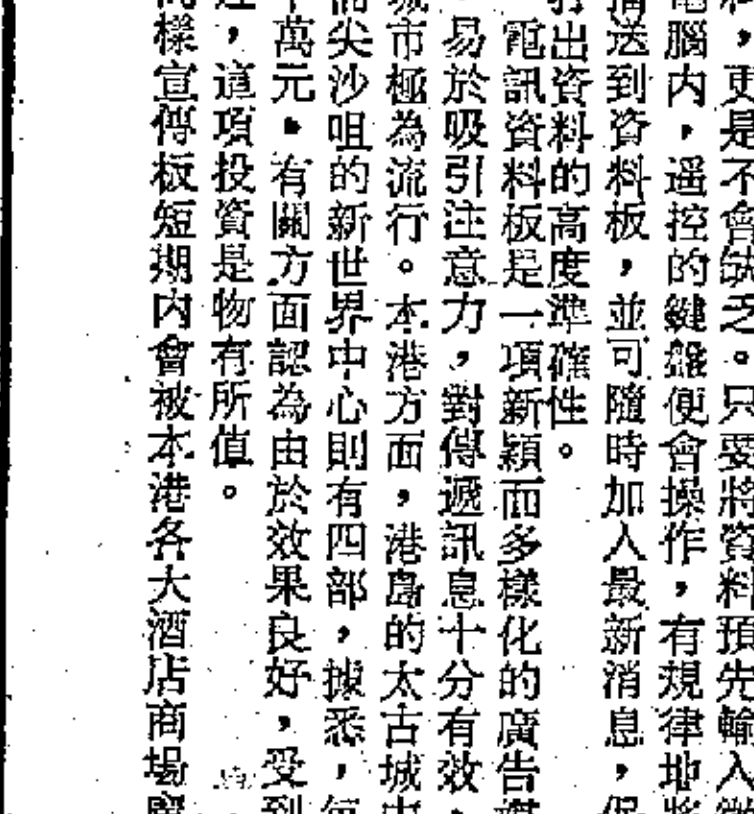 ，更是不會缺乏。只要將資料預先輸入微
電腦內，遥控的鍵盤便會操作，有規律地將
播送到資料板，並可隨時加入最新消息，保
打出資料的高度準確性。
電訊資料板是一項新穎而多樣化的廣告媒
，易於吸引注意力，對傳遞訊息十分有效，
城市極為流行。本港方面，港島的太古城中
尖沙咀的新世界中心則有四部，據悉，每
萬元。有關方面認為由於效果良好，受到
，這項投資是物有所值。
樣宣傳板短期內會被本港各大酒店商場